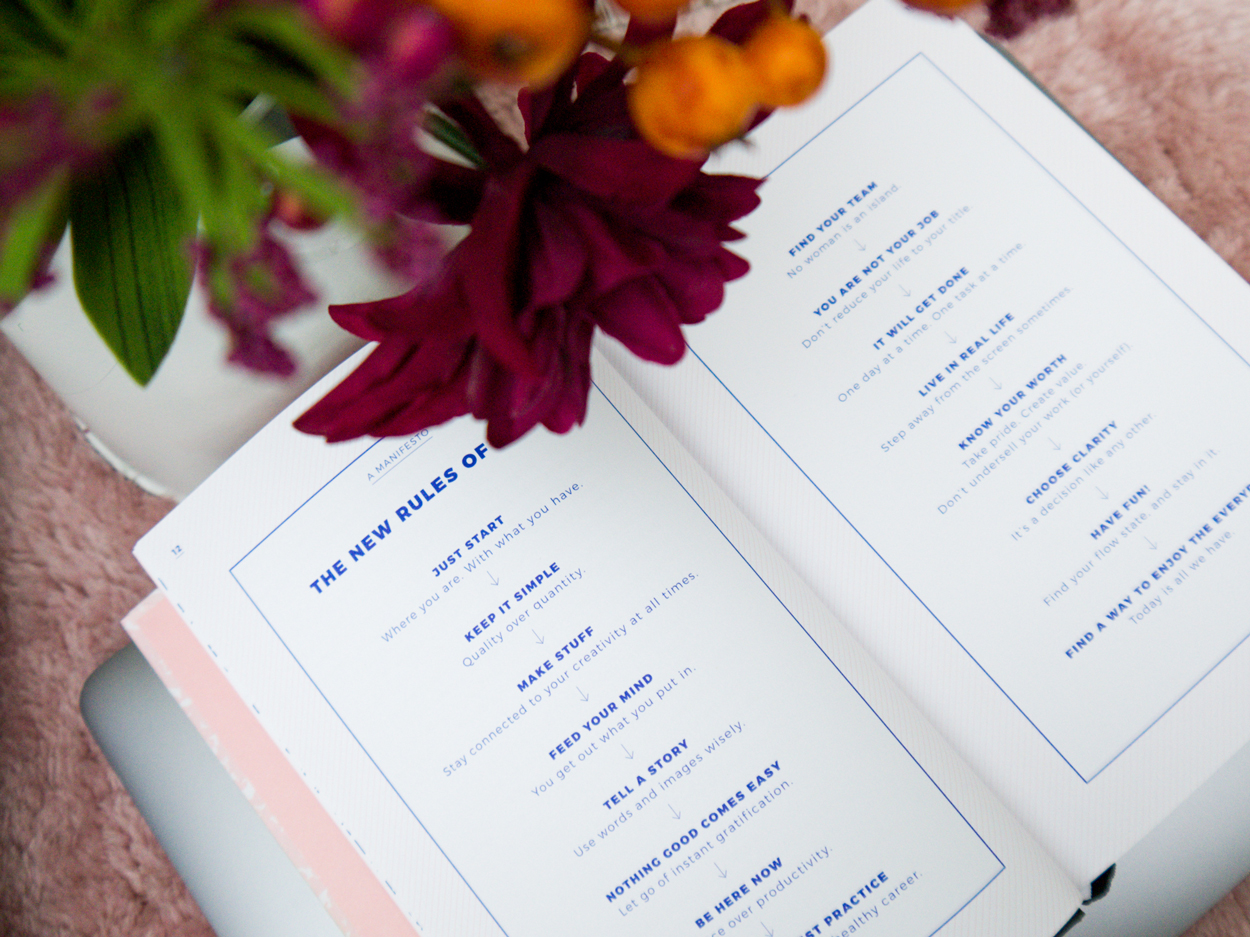 12
A MANIFESTO
THE NEW RULES OF
JUST START
Where you are. With what you have.
KEEP IT SIMPLE
Quality over quantity.
MAKE STUFF
Stay connected to your creativity at all times.
FEED YOUR MIND
You get out what you put in.
TELL A STORY
Use words and images wisely.
NOTHING GOOD COMES EASY
Let go of instant gratification.
BE HERE NOW
over productivity.
PRACTICE
healthy career.
FIND YOUR TEAM
No woman is an island.
YOU ARE NOT YOUR JOB
Don't reduce your life to your title.
IT WILL GET DONE
One day at a time. One task at a time.
LIVE IN REAL LIFE
Step away from the screen sometimes.
KNOW YOUR WORTH
Take pride. Create value
Don't undersell your work (or yourself).
CHOOSE CLARITY
It's a decision like any other.
HAVE FUN!
Find your flow state, and stay in it.
FIND A WAY TO ENJOY THE
Today is all we have.